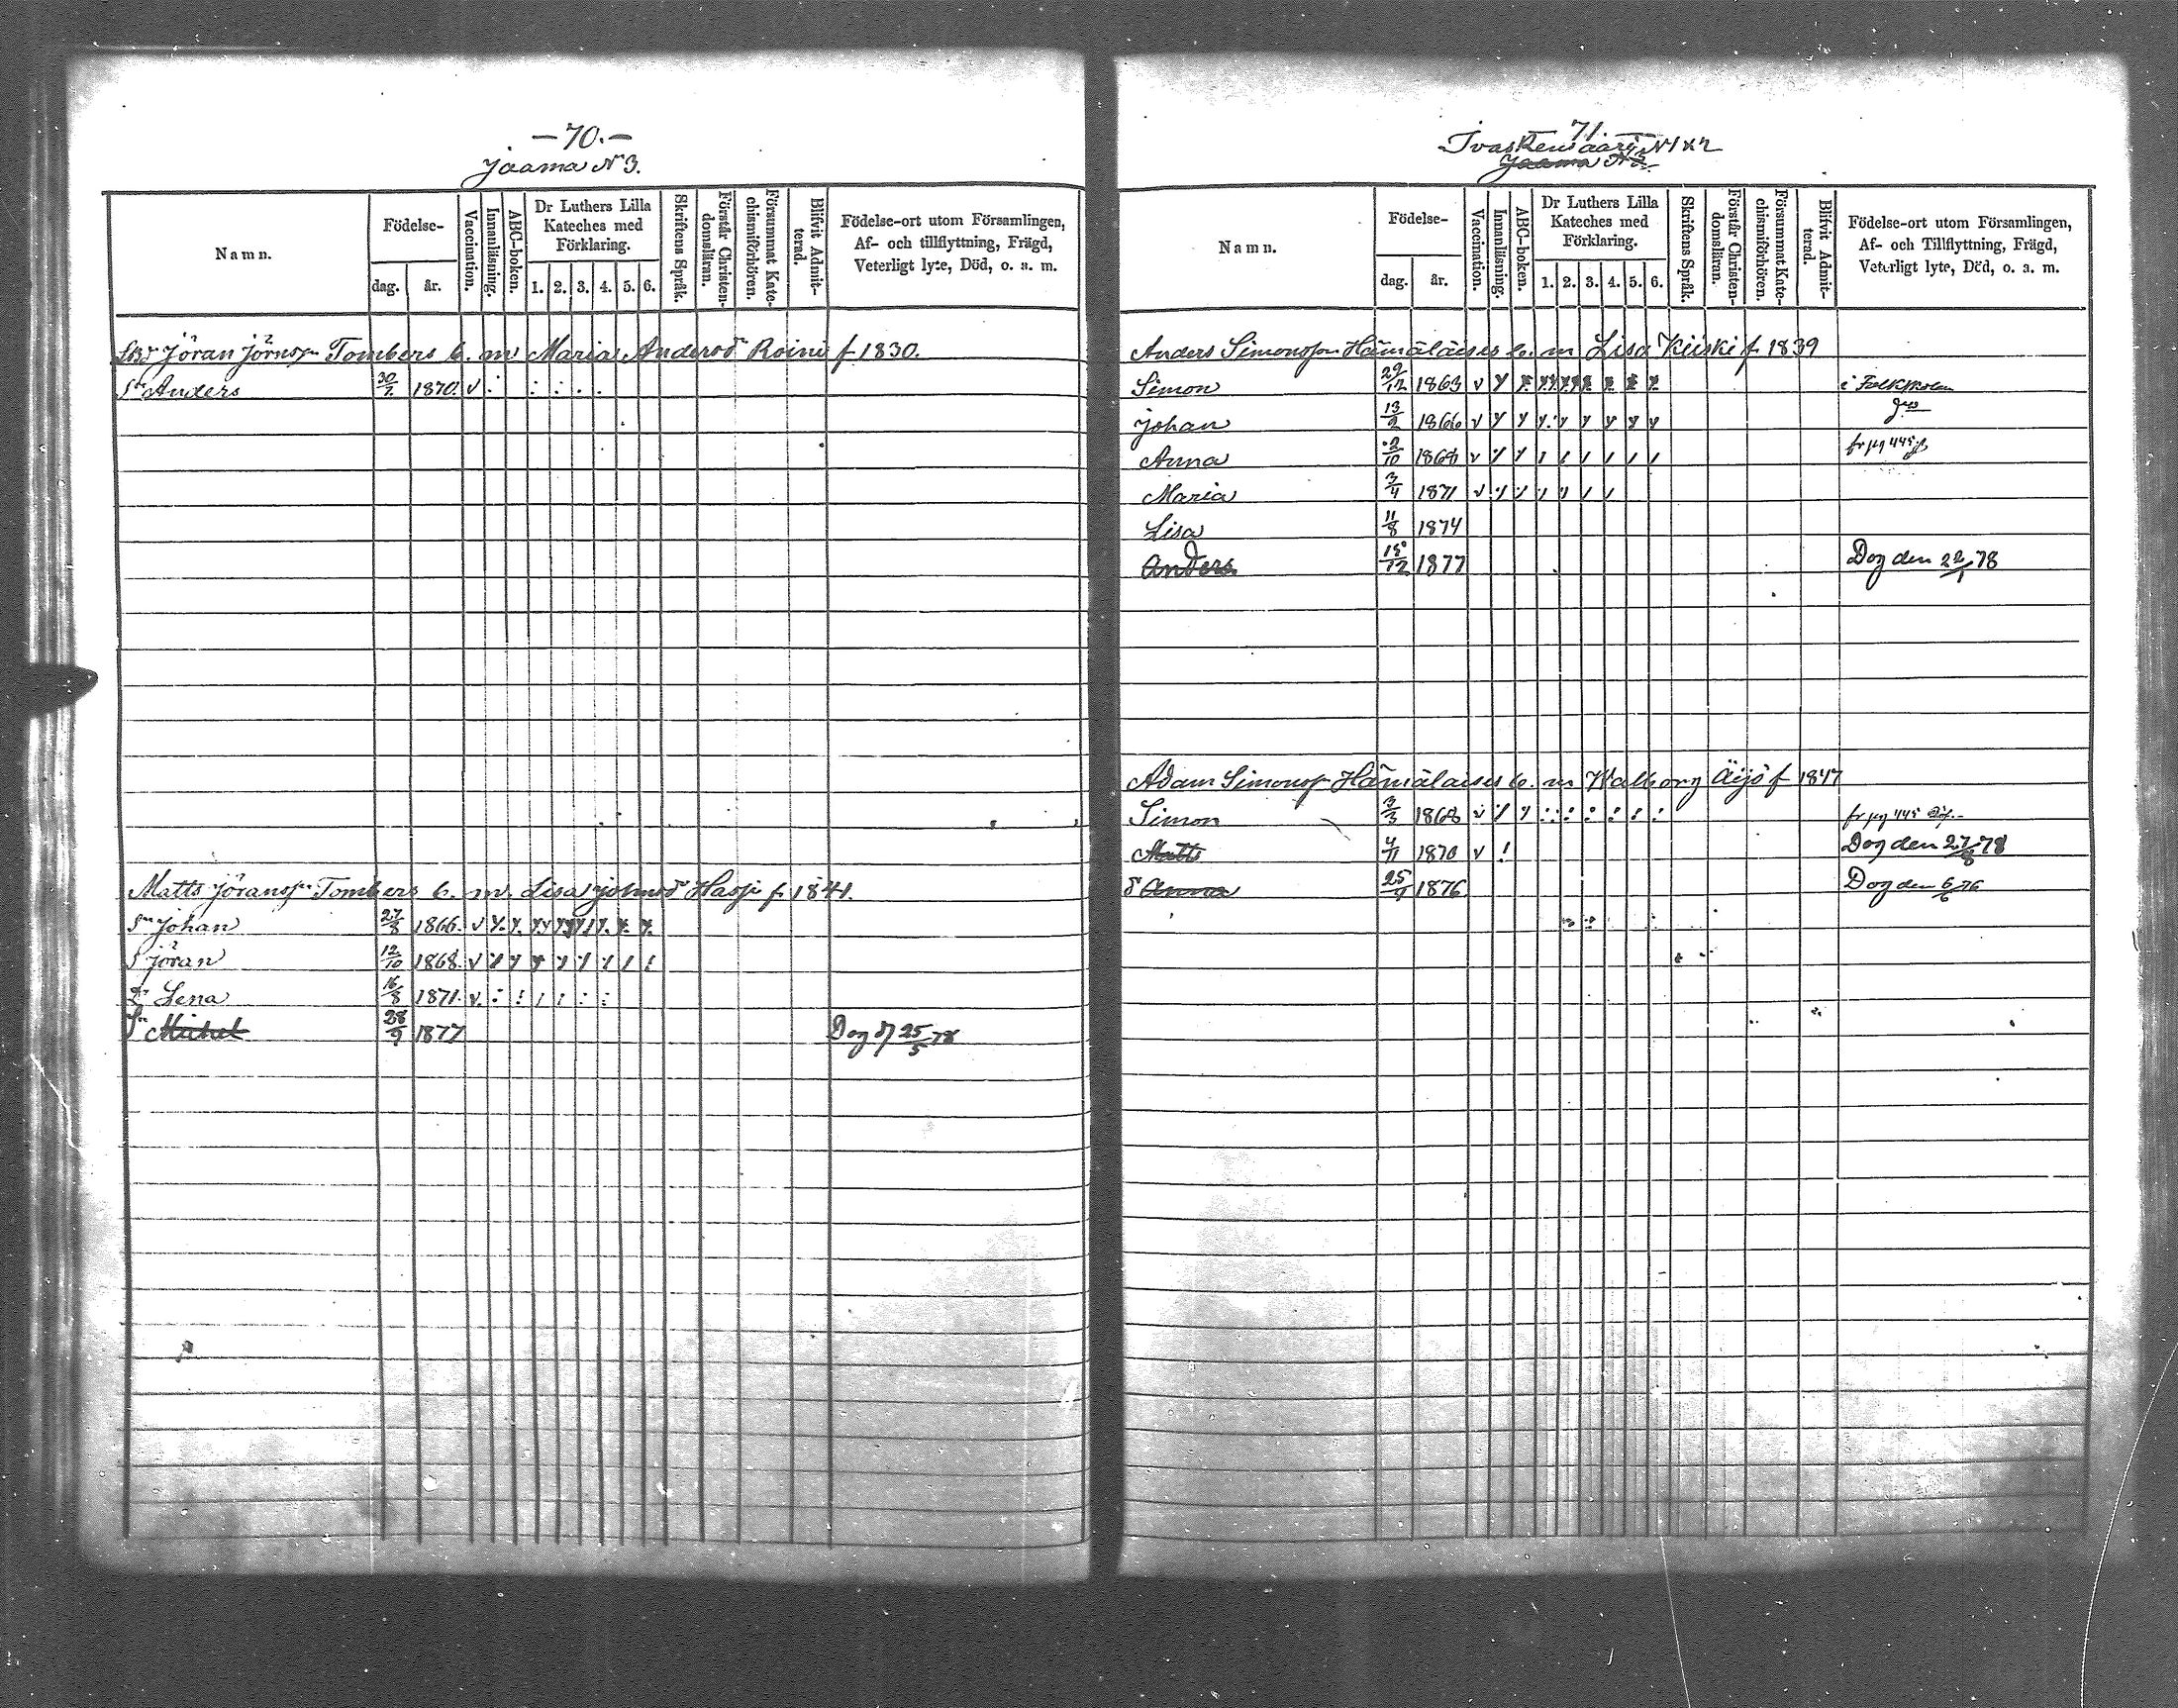 —70.—
Jaama N 3.
Namn.
Födelse-
dag.
år.
Vaccination.
Innanläsning.
ABC-boken.
Dr Luthers Lilla
Kateches med
Förklaring.
1. 2. 3. 4. 5. 6.
Skriftens Språk.
Förstår Christen-
domsläran.
Försummat Kate-
chismiförhören.
Blifvit Admit-
terad.
Födelse-ort utom Församlingen,
Af- och tillflyttning, Frägd,
Veterligt lyte, Död, o. s. m.
Jöran Jörnsp Tombers b. m. Maria Andersd Roini f 1830.
Sn Anders 30/7 1870. v
Matts Jöransp Tombers b. m. Lisa Johnsd Hasje f. 1841.
Sn Johan 27/8 1866. v
S Jöran 12/10 1868. v
Dr Lena 16/8 1871. v
Sn Michel 28/9 1877 Dog d 25/5 78
71.
Ivaskensaari N 1 & 2
Jaama N 3.
Namn.
Födelse-
dag.
år.
Vaccination.
Innanläsning.
ABC-boken.
Dr Luthers Lilla
Kateches med
Förklaring.
1. 2. 3. 4. 5. 6.
Skriftens Språk.
Förstår Christen-
domsläran.
Försummat Kate-
chismiförhören.
Blifvit Admit-
terad.
Födelse-ort utom Församlingen,
Af- och Tillflyttning, Frägd,
Veterligt lyte, Död, o. a. m.
Anders Simonsp Hämäläises b. m Lisa Kiiski f 1839
Simon 29/12 1863 v i Folkskolan
Johan 13/2 1866 v
Anna 2/10 1868 v fr pg 445
Maria 3/4 1871 v
Lisa 11/8 1874
Anders 15/12 1877 Dog den 22/1 78
Adam Simonsp Hämäläises b. m Walborg Äijö f 1847
Simon 3/3 1868 v fr pg 445
Matts 4/11 1870 v Dog den 27/8 78
d Anna 25/4 1876 Dog den 6/6 76